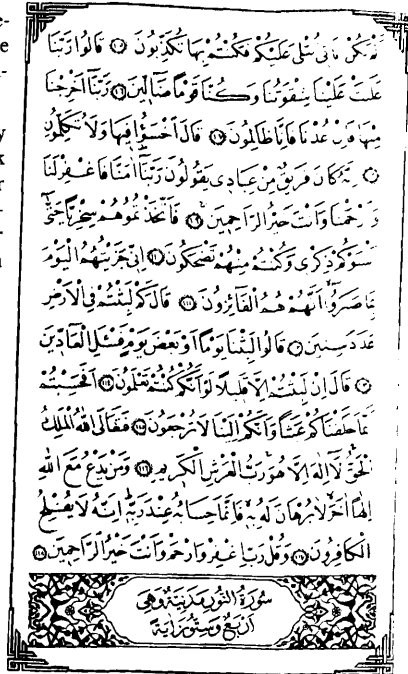 تَكُنْ اٰيَاتِى تُتْلٰى عَلَيْكُمْ فَكُنْتُمْ بِهَا تُكَذِّبُونَ ﴿١٠٥﴾ قَالُوا رَبَّنَا
غَلَبَتْ عَلَيْنَا شِقْوَتُنَا وَكُنَّا قَوْمًا ضَٓالِّينَ ﴿١٠٦﴾ رَبَّنَٓا اَخْرِجْنَا
مِنْهَا فَاِنْ عُدْنَا فَاِنَّا ظَالِمُونَ ﴿١٠٧﴾ قَالَ اخْسَؤُا فِيهَا وَلَا تُكَلِّمُونِ
﴿١٠٨﴾ اِنَّهُ كَانَ فَرِيقٌ مِنْ عِبَادِى يَقُولُونَ رَبَّنَٓا اٰمَنَّا فَاغْفِرْ لَنَا
وَارْحَمْنَا وَاَنْتَ خَيْرُ الرَّاحِمِينَ ﴿١٠٩﴾ فَاتَّخَذْتُمُوهُمْ سِخْرِيًّا حَتّٰٓى
اَنْسَوْكُمْ ذِكْرِى وَكُنْتُمْ مِنْهُمْ تَضْحَكُونَ ﴿١١٠﴾ اِنِّى جَزَيْتُهُمُ الْيَوْمَ
بِمَا صَبَرُٓوا اَنَّهُمْ هُمُ الْفَٓائِزُونَ ﴿١١١﴾ قَالَ كَمْ لَبِثْتُمْ فِى الْاَرْضِ
عَدَدَ سِنِينَ ﴿١١٢﴾ قَالُوا لَبِثْنَا يَوْمًا اَوْ بَعْضَ يَوْمٍ فَسْئَلِ الْعَٓادِّينَ
﴿١١٣﴾ قَالَ اِنْ لَبِثْتُمْ اِلَّا قَلِيلًا لَوْ اَنَّكُمْ كُنْتُمْ تَعْلَمُونَ ﴿١١٤﴾ اَفَحَسِبْتُمْ
اَنَّمَا خَلَقْنَاكُمْ عَبَثًا وَاَنَّكُمْ اِلَيْنَا لَا تُرْجَعُونَ ﴿١١٥﴾ فَتَعَالَى اللّٰهُ الْمَلِكُ
الْحَقُّ لَٓا اِلٰهَ اِلَّا هُوَ رَبُّ الْعَرْشِ الْكَرِيمِ ﴿١١٦﴾ وَمَنْ يَدْعُ مَعَ اللّٰهِ
اِلٰهًا اٰخَرَ لَا بُرْهَانَ لَهُ بِهِ فَاِنَّمَا حِسَابُهُ عِنْدَ رَبِّهِ اِنَّهُ لَا يُفْلِحُ
الْكَافِرُونَ ﴿١١٧﴾ وَقُلْ رَبِّ اغْفِرْ وَارْحَمْ وَاَنْتَ خَيْرُ الرَّاحِمِينَ ﴿١١٨﴾
سُورَةُ النُّورِ مَدَنِيَّةٌ وَهِىَ
اَرْبَعٌ وَسِتُّونَ اٰيَةً